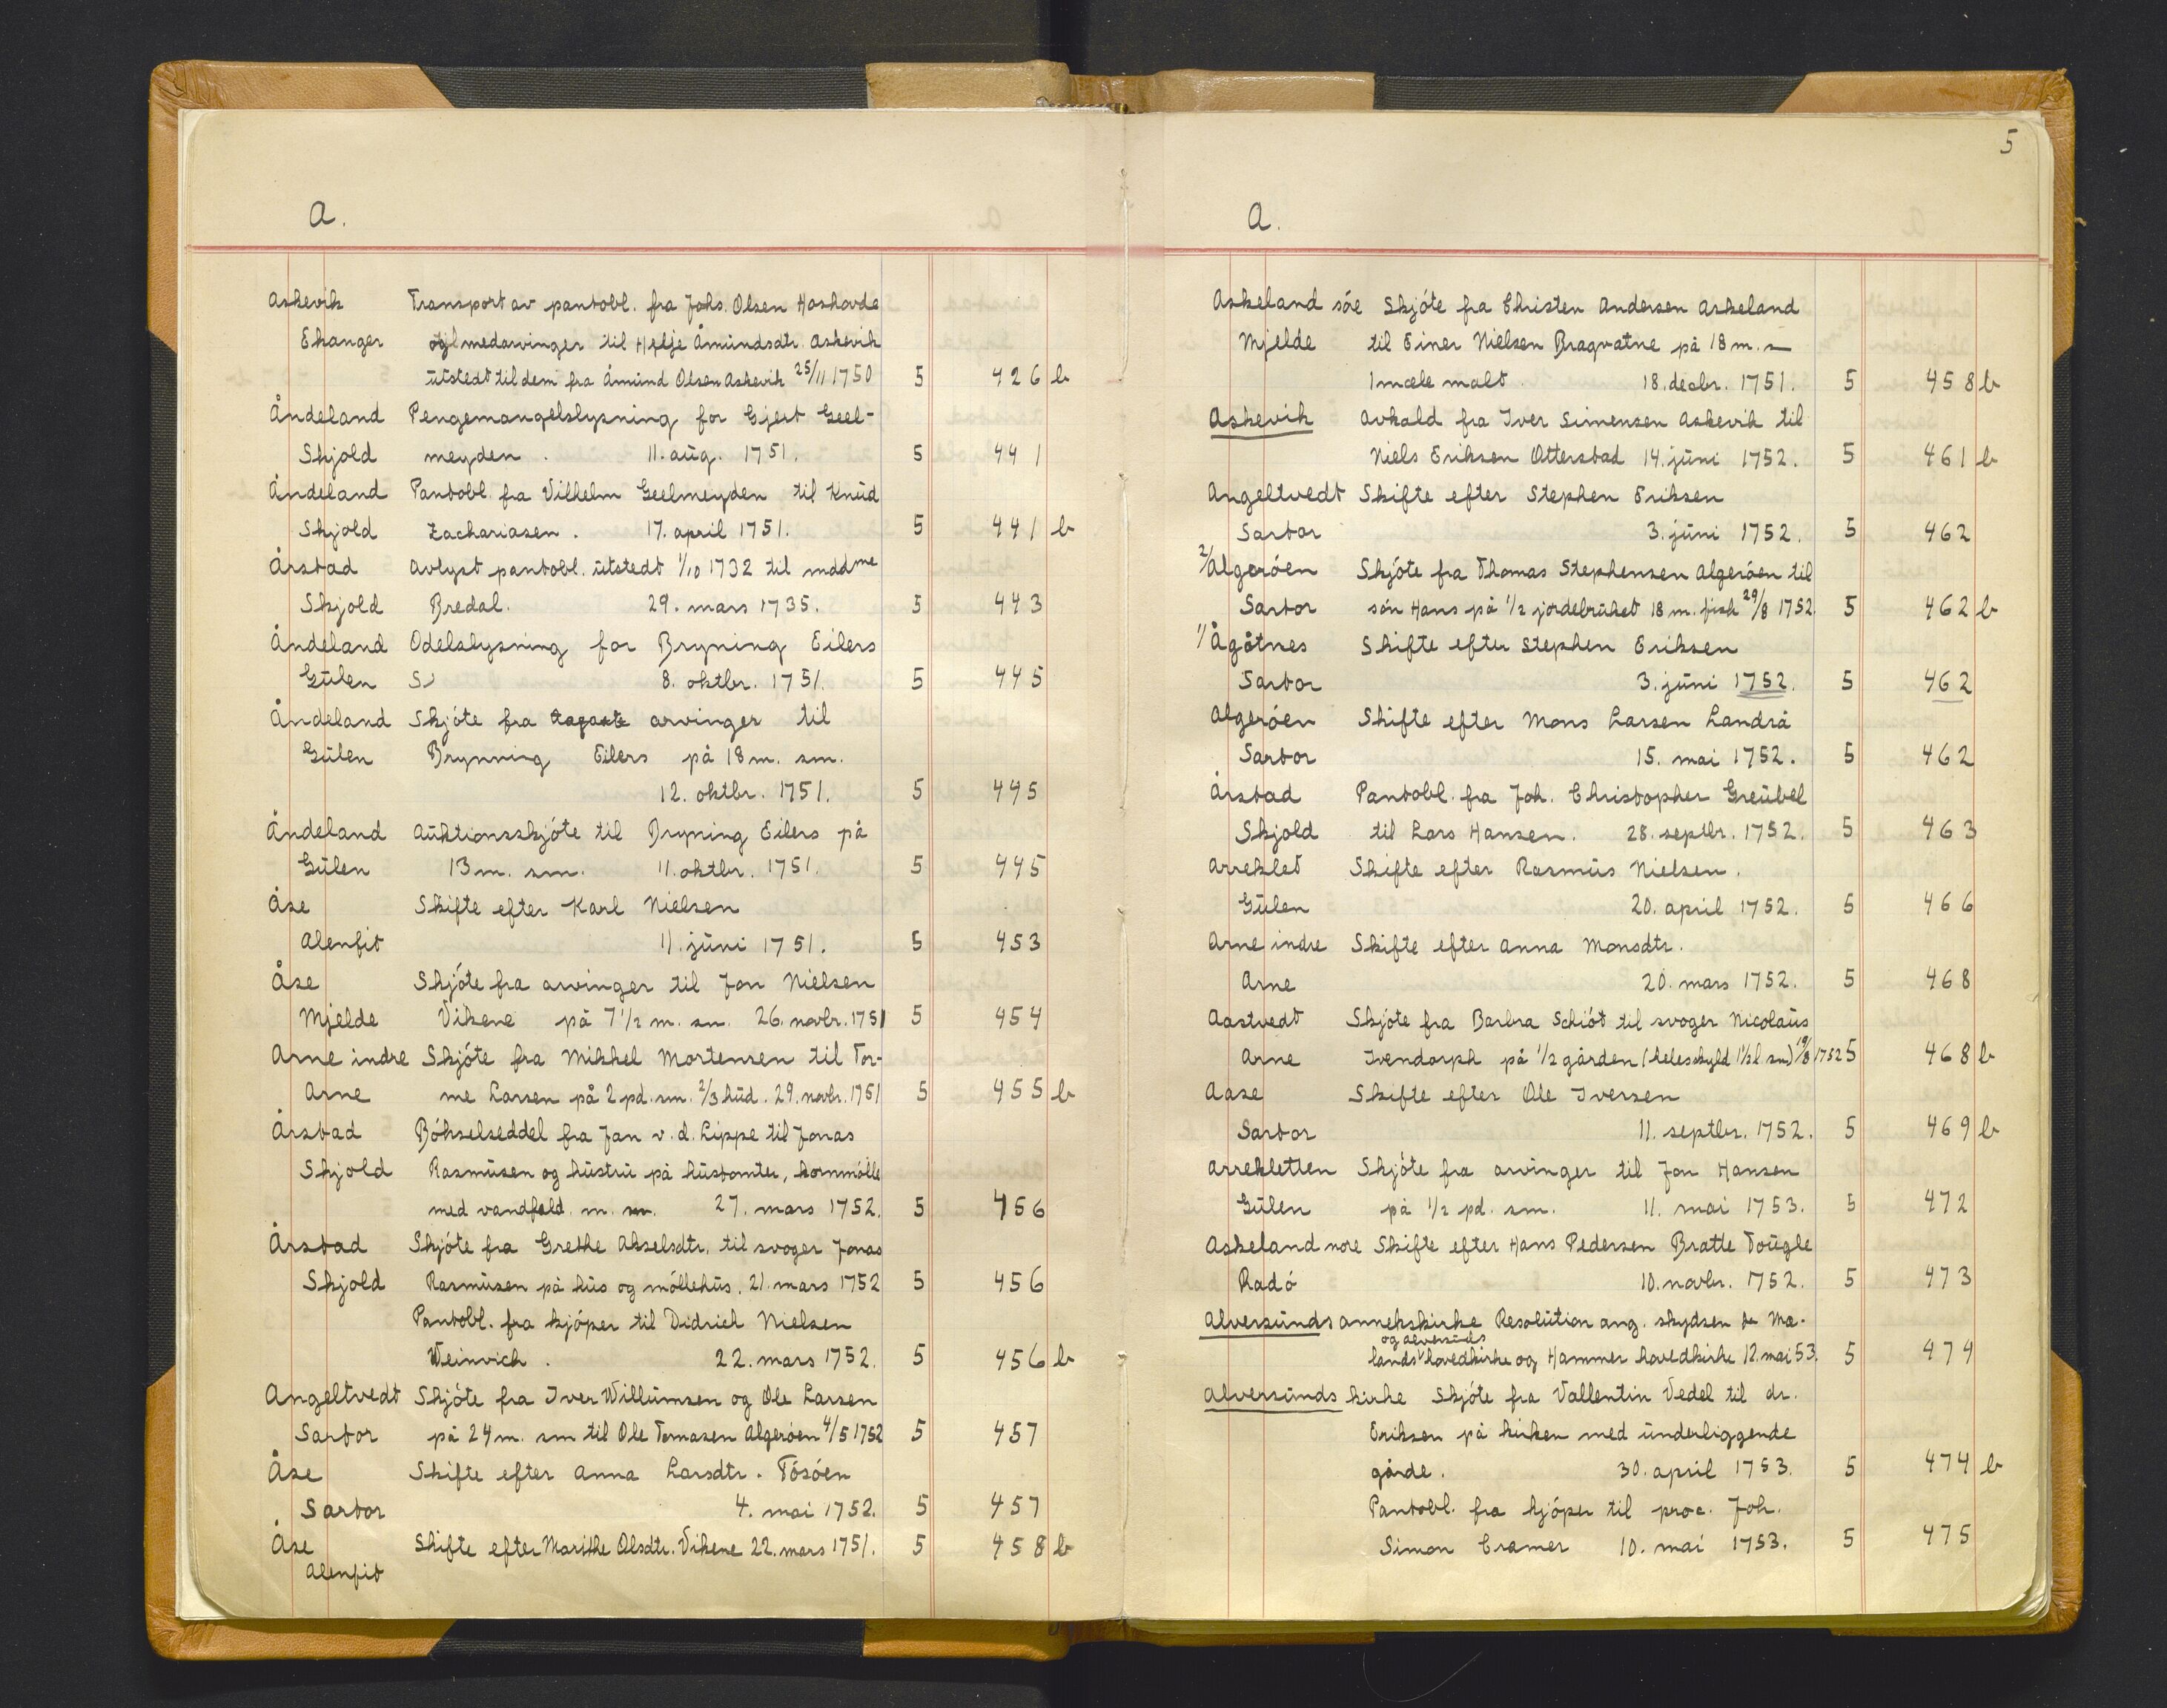 A.
Askevik Transport av pantobl. fra Johs. Olsen Haskavde
Ekanger og medarvinger til Helje Åmundsdtr. Askevik
ütstedt til dem fra Åmünd Olsen Askevik 25/11 1750 5 426 b
Åndeland Pengemangelslysning for Gjert Geel-
Skjold meyden. 11. aüg. 1751. 5 441
Åndeland Pantobl. fra Vilhelm Geelmeyden til Knüd
Skjold Zachariasen. 17. april 1751. 5 441 b
Årstad Avlyst pantobl. ütstedt 1/10 1732 til madme
Skjold Bredal. 29. mars 1735. 5 443
Åndeland Odelslysning for Bryning Eilers
Gülen 8. oktbr. 1751. 5 445
Åndeland Skjöte fra arvinger til
Gülen Brynning Eilers på 18 m. sm.
12. oktbr. 1751. 5 445
Åndeland Aüktionsskjöte til Bryning Eilers på
Gülen 13 m. sm. 11. oktbr. 1751. 5 445
Åse Skifte efter Karl Nielsen
Alenfit 11. jüni 1751. 5 453
Åse Skjöte fra arvinger til Jon Nielsen
Mjelde Vikene på 7 1/2 m. sm. 26. novbr. 1751 5 454
Arne indre Skjöte fra Mikkel Mortensen til Tor-
Arne me Larsen på 2 pd. sm. 2/3 hüd. 29. novbr. 1751 5 455 b
Årstad Böhselseddel fra Jan v. d. Lippe til Jonas
Skjold Rasmüsen og hüstrü på hüstomter, kornmölle
med vandfald m. m. 27. mars 1752. 5 456
Årstad Skjöte fra Grethe Akselsdtr. til svoger Jonas
Skjold Rasmüsen på hüs og möllehüs. 21. mars 1752 5 456
Pantobl. fra kjöper til Didrich Nielsen
Weinvich. 22. mars 1752. 5 456 b
Angeltvedt Skjöte fra Iver Willümsen og Ole Larsen
Sartor på 24 m. sm til Ole Tomasen Algeröen 4/5 1752 5 457
Åse Skifte efter Anna Larsdtr. Tösöen
Sartor 4. mai 1752. 5 457
Åse Skifte efter Marithe Olsdtr. Vikene 22. mars 1751. 5 458 b
Alenfit
5
A.
Askeland söe Skjöte fra Christen Andersen Askeland
Mjelde til Einer Nielsen Bragvatne på 18 m. s
1 mæle malt. 18. decbr. 1751. 5 458 b
Askevik Avkald fra Iver Simensen Askevik til
Niels Eriksen Otterstad 14. jüni 1752. 5 461 b
Angeltvedt Skifte efter Stephen Eriksen
Sartor 3. jüni 1752. 5 462
2/ Algeröen Skjöte fra Thomas Stephensen Algeröen til
Sartor sön Hans på 1/2 jordebrüket 18 m. fisk 29/8 1752 5 462 b
1/ Ågåtnes Skifte efter Stephen Eriksen
Sartor 3. jüni 1752. 5 462
Algeröen Skifte efter Mons Larsen Landrå
Sartor 15. mai 1752. 5 462
Årstad Pantobl. fra Joh. Christopher Greübel
Skjold til Lars Hansen. 28. septbr. 1752. 5 463
Arreklet Skifte efter Rasmüs Nielsen.
Gülen 20. april 1752. 5 466
Arne indre Skifte efter Anna Monsdtr.
Arne 20. mars 1752. 5 468
Aastvedt Skjöte fra Barbra Schiöt til svoger Nicolaüs
Arne Ivendorph på 1/2 gården (heleskyld 1 1/2 l sm) 19/8 1752 5 468 b
Aase Skifte efter Ole Iversen
Sartor 11. septbr. 1752. 5 469 b
Arrekletten Skjöte fra arvinger til Jon Hansen
Gülen på 1/2 pd. sm. 11. mai 1753. 5 472
Askeland nore Skifte efter Hans Pedersen Bratte Toügle
Radö 10. novbr. 1752. 5 473
Alversünds annekskirke Resolütion ang. skydsen Mæ-
og alversünds
lands hovedkirke og Hammer hovedkirke 12. mai 53. 5 474
Alversünds kirke Skjöte fra Vallentin Vedel til dr.
Eriksen på kirken med ünderliggende
gårde. 30. april 1753. 5 474 b
Pantobl. fra kjöper til proc. Joh.
Simon Cramer 10. mai 1753. 5 475